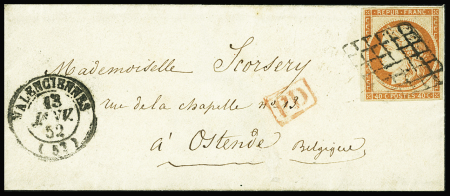 REPUB. FRANC.
40 C. POSTES 40 C.
Mademoiselle Scorsery
rue de la chapelle n° 23
à Ostende
Belgique
PD
VALENCIENNES
13
JANV.
52
(57)